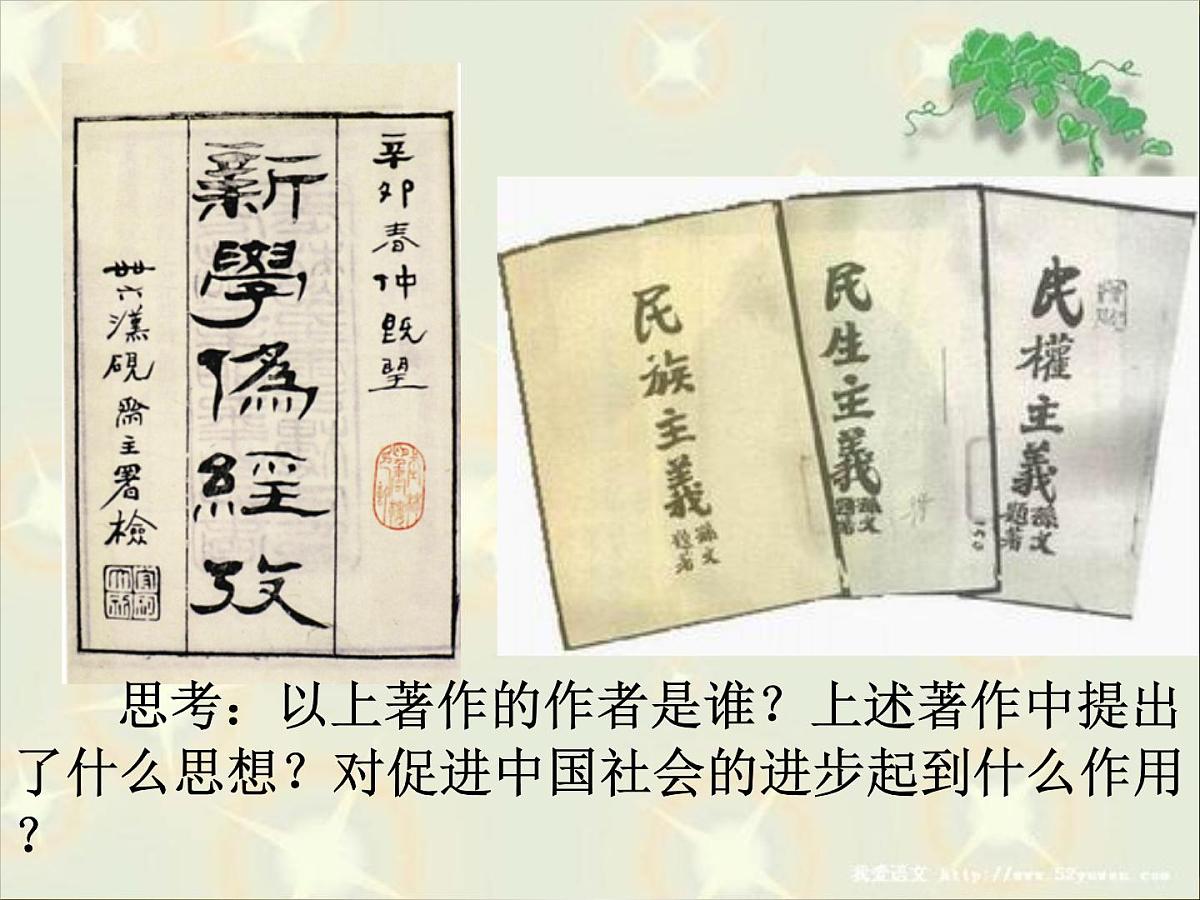 辛卯春仲既望
新學偽經攷
卌六漢硯齋主署檢
民族主義
孫文
題署
民生主義
孫文
題署
民權主義
孫文
題署
思考：以上著作的作者是谁？上述著作中提出
了什么思想？对促进中国社会的进步起到什么作用
？
我爱语文 http://www.52yuwen.com